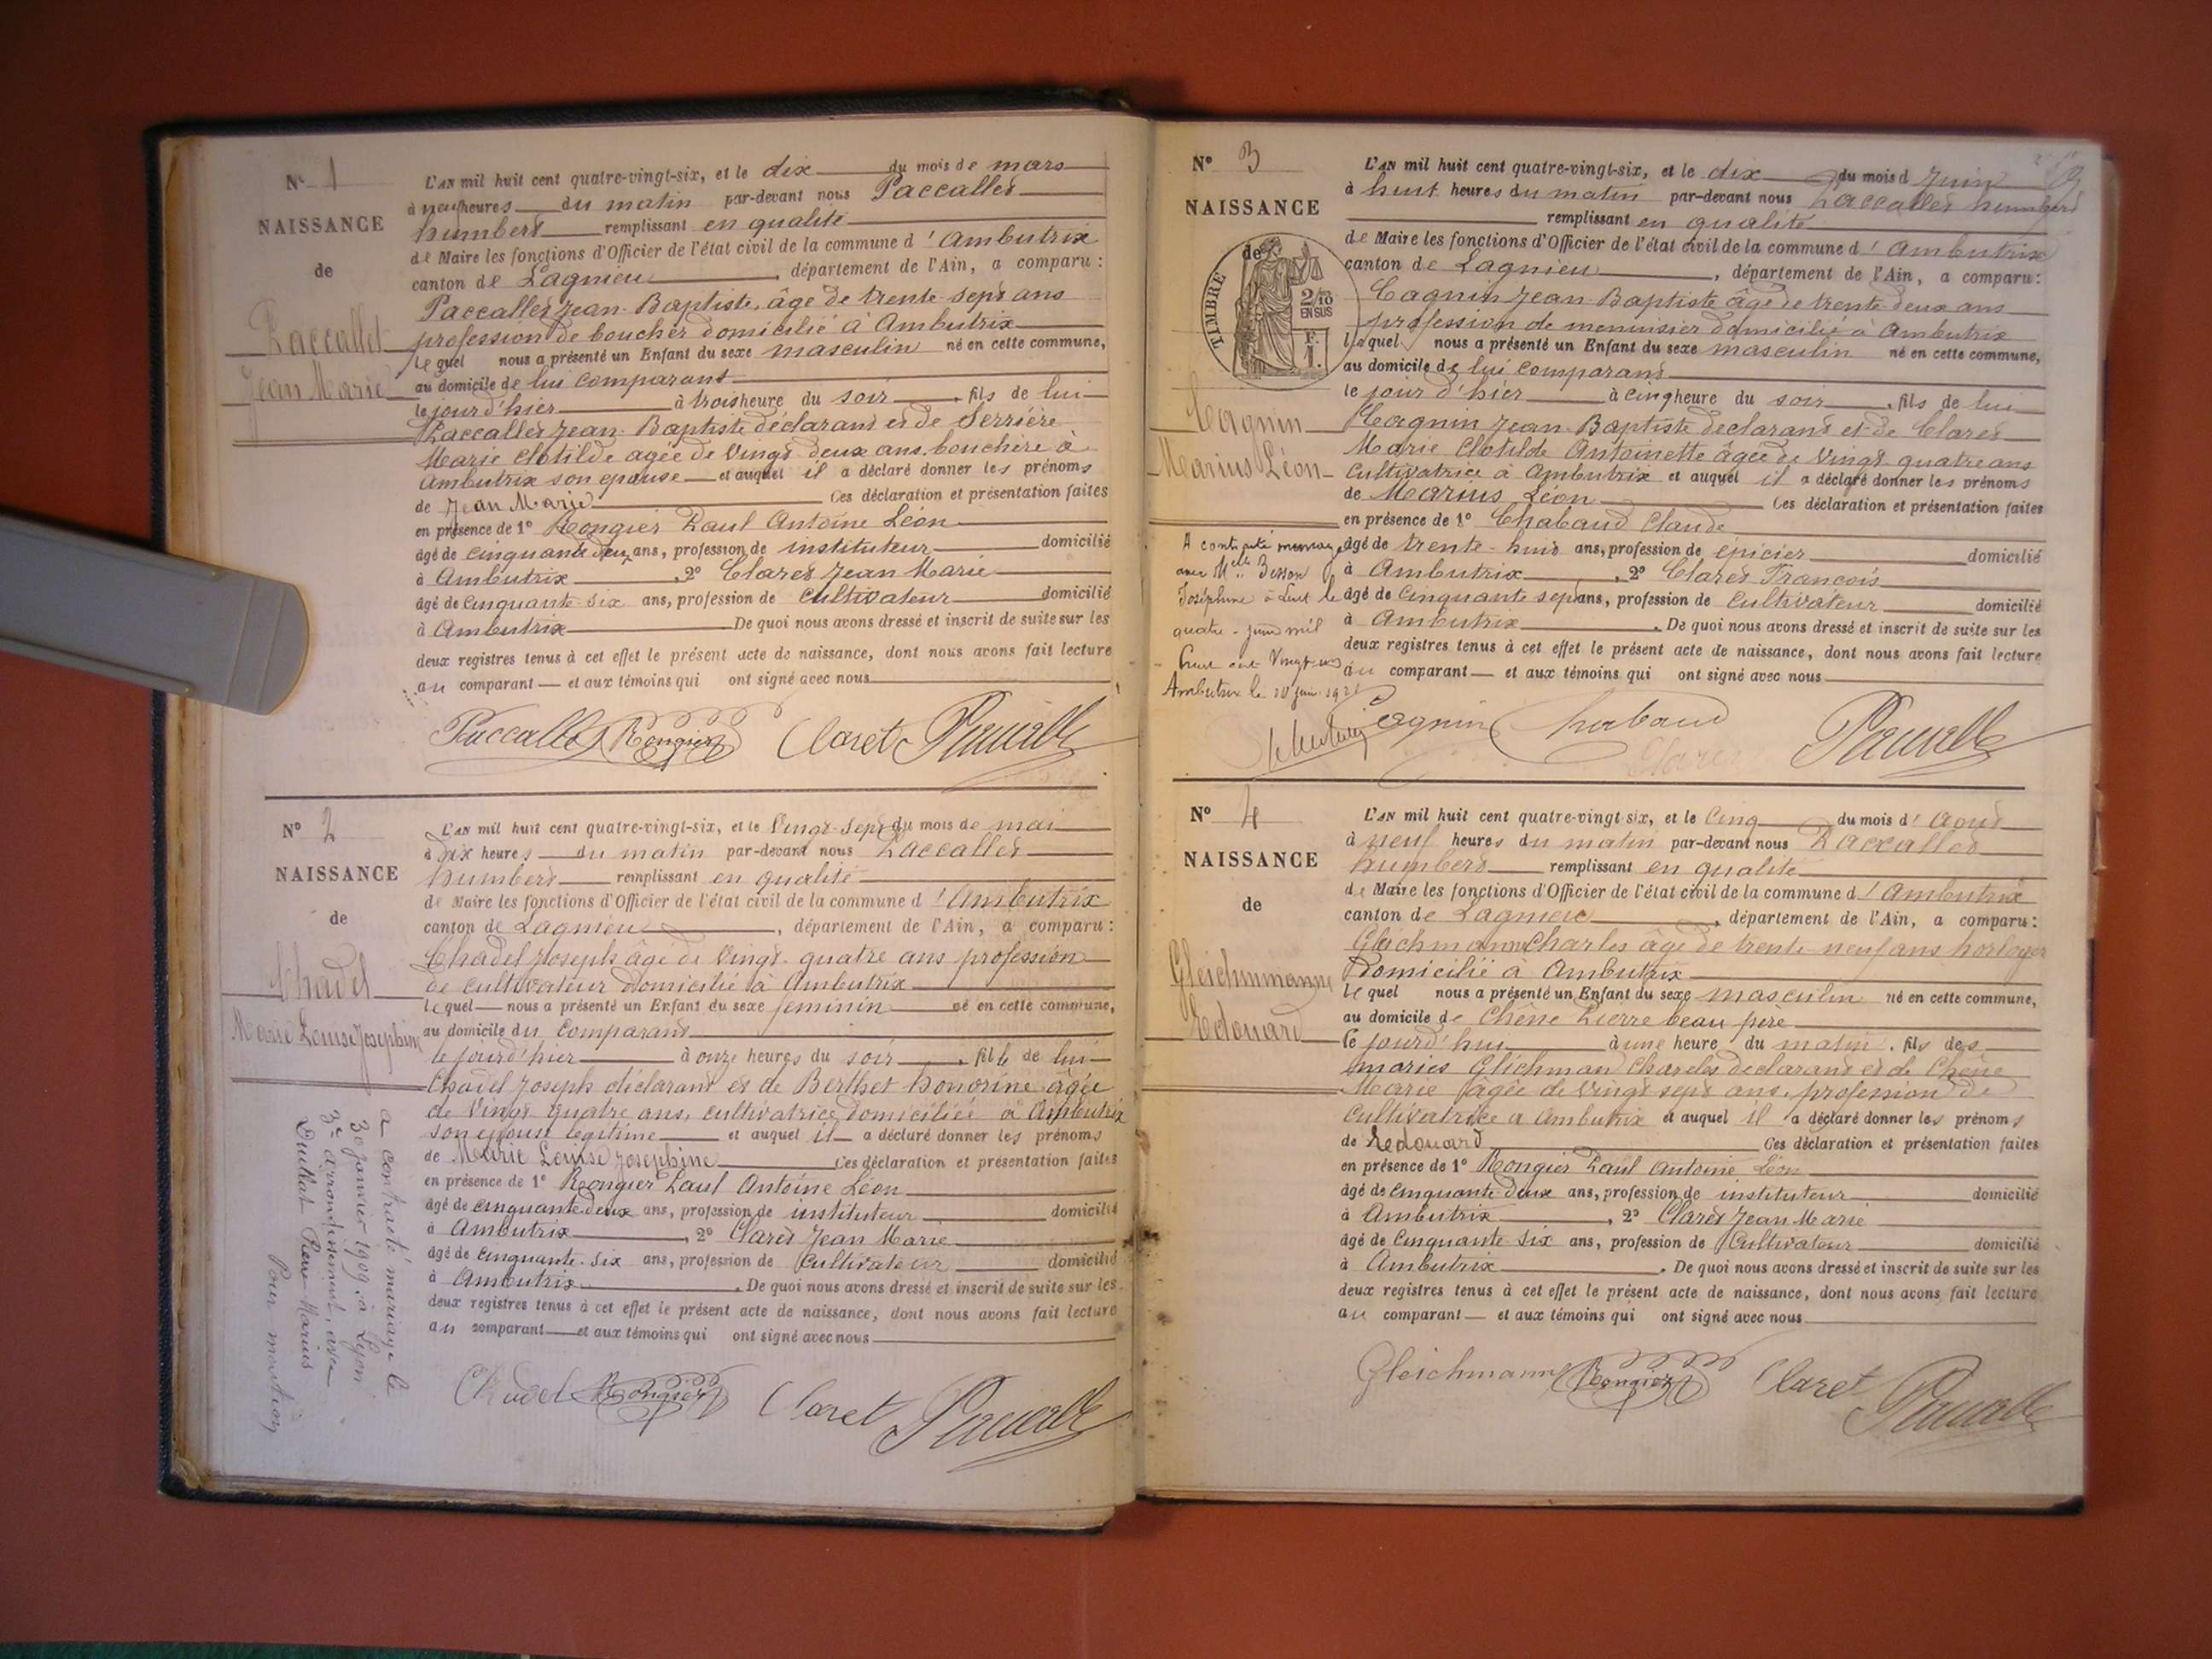 N° 1
NAISSANCE
de
Paccallet
Jean Marie
L'AN mil huit cent quatre-vingt-six, et le dix du mois de mars
à neuf heures du matin par-devant nous Paccallet
humbert remplissant en qualité
de Maire les fonctions d'Officier de l'état civil de la commune d'Ambutrix
canton de Lagnieu, département de l'Ain, a comparu :
Paccallet Jean-Baptiste, âgé de trente-sept ans
profession de boucher domicilié à Ambutrix
lequel nous a présenté un Enfant du sexe masculin né en cette commune,
au domicile de lui comparant
le jour d'hier à trois heure du soir, fils de lui
Paccallet Jean-Baptiste déclarant et de Serrière
Marie Clotilde agée de vingt deux ans, bouchère à
Ambutrix son epouse et auquel il a déclaré donner les prénoms
de Jean Marie Ces déclaration et présentation faites
en présence de 1° Rongier Paul Antoine Léon
âgé de cinquante deux ans, profession de instituteur domicilié
à Ambutrix, 2° Claret Jean Marie
âgé de cinquante-six ans, profession de cultivateur domicilié
à Ambutrix De quoi nous avons dressé et inscrit de suite sur les
deux registres tenus à cet effet le présent acte de naissance, dont nous avons fait lecture
au comparant et aux témoins qui ont signé avec nous
Paccallet Rongier Claret Paccallet
N° 2
NAISSANCE
de
Chadel
Marie Louise Josephine
L'AN mil huit cent quatre-vingt-six, et le vingt-sept du mois de mai
à dix heures du matin par-devant nous Paccallet
humbert remplissant en qualité
de Maire les fonctions d'Officier de l'état civil de la commune d'Ambutrix
canton de Lagnieu, département de l'Ain, a comparu :
Chadel Joseph âgé de vingt-quatre ans profession
de cultivateur domicilié à Ambutrix
lequel nous a présenté un Enfant du sexe feminin né en cette commune,
au domicile du comparant
le jour d'hier à onze heures du soir, fille de lui
Chadel Joseph déclarant et de Berthet honorine âgée
de vingt quatre ans, cultivatrice domiciliée à Ambutrix
son epouse légitime et auquel il a déclaré donner les prénoms
de Marie Louise Josephine Ces déclaration et présentation faites
en présence de 1° Rongier Paul Antoine Léon
âgé de cinquante deux ans, profession de instituteur domicilié
à Ambutrix, 2° Claret Jean Marie
âgé de cinquante-six ans, profession de cultivateur domicilié
à Ambutrix. De quoi nous avons dressé et inscrit de suite sur les
deux registres tenus à cet effet le présent acte de naissance, dont nous avons fait lecture
au comparant et aux témoins qui ont signé avec nous
Chadel Rongier Claret Paccallet
a contracté mariage le
30 janvier 1909 à Lyon
3e arrondissement, avec
Pierre-Marius
Pour mention
N° 3
NAISSANCE
de
TIMBRE
2/10
EN SUS
F.
1.
Cagnin
Marius Léon
L'AN mil huit cent quatre-vingt-six, et le dix du mois d Juin
à huit heures du matin par-devant nous Paccallet humbert
remplissant en qualité
de Maire les fonctions d'Officier de l'état civil de la commune d'Ambutrix
canton de Lagnieu, département de l'Ain, a comparu :
Cagnin Jean-Baptiste âgé de trente-deux ans
profession de menuisier domicilié à Ambutrix
lequel nous a présenté un Enfant du sexe masculin né en cette commune,
au domicile de lui comparant
le jour d'hier à cinq heure du soir, fils de lui
Cagnin Jean-Baptiste declarant et de Claret
Marie Clotilde Antoinette âgée de vingt-quatre ans
cultivatrice à Ambutrix et auquel il a déclaré donner les prénoms
de Marius Léon Ces déclaration et présentation faites
en présence de 1° Chabaud Claude
âgé de trente-huit ans, profession de épicier domicilié
à Ambutrix, 2° Claret François
âgé de cinquante sept ans, profession de cultivateur domicilié
à Ambutrix. De quoi nous avons dressé et inscrit de suite sur les
deux registres tenus à cet effet le présent acte de naissance, dont nous avons fait lecture
au comparant et aux témoins qui ont signé avec nous
A contracté mariage
avec Melle Besson
Joséphine à le
quatre juin mil
neuf cent vingt
Ambutrix le 10 juin
Cagnin Chabaud Claret Paccallet
N° 4
NAISSANCE
de
Gleichmann
Edouard
L'AN mil huit cent quatre-vingt-six, et le cinq du mois d'Aout
à neuf heures du matin par-devant nous Paccallet
humbert remplissant en qualité
de Maire les fonctions d'Officier de l'état civil de la commune d'Ambutrix
canton de Lagnieu, département de l'Ain, a comparu :
Gleichmann Charles âgé de trente-neuf ans horloger
Domicilié à Ambutrix
lequel nous a présenté un Enfant du sexe masculin né en cette commune,
au domicile de Chêne Pierre beau pere
le jourd'hui à une heure du matin, fils des
mariés Glichman Chareles declarant et de Chêne
Marie âgée de vingt sept ans, profession de
cultivatrice a Ambutrix et auquel il a déclaré donner les prénoms
de Edouard Ces déclaration et présentation faites
en présence de 1° Rongier Paul Antoine Léon
âgé de cinquante-deux ans, profession de instituteur domicilié
à Ambutrix, 2° Claret Jean Marie
âgé de cinquante-six ans, profession de cultivateur domicilié
à Ambutrix. De quoi nous avons dressé et inscrit de suite sur les
deux registres tenus à cet effet le présent acte de naissance, dont nous avons fait lecture
au comparant et aux témoins qui ont signé avec nous
Gleichmann Rongier Claret Paccallet